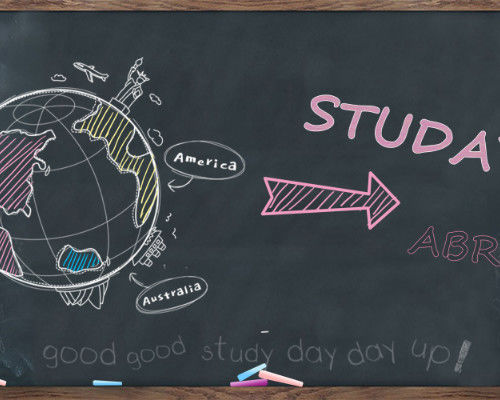 America
STUDAY
ABR
Australia
good good study day day up!